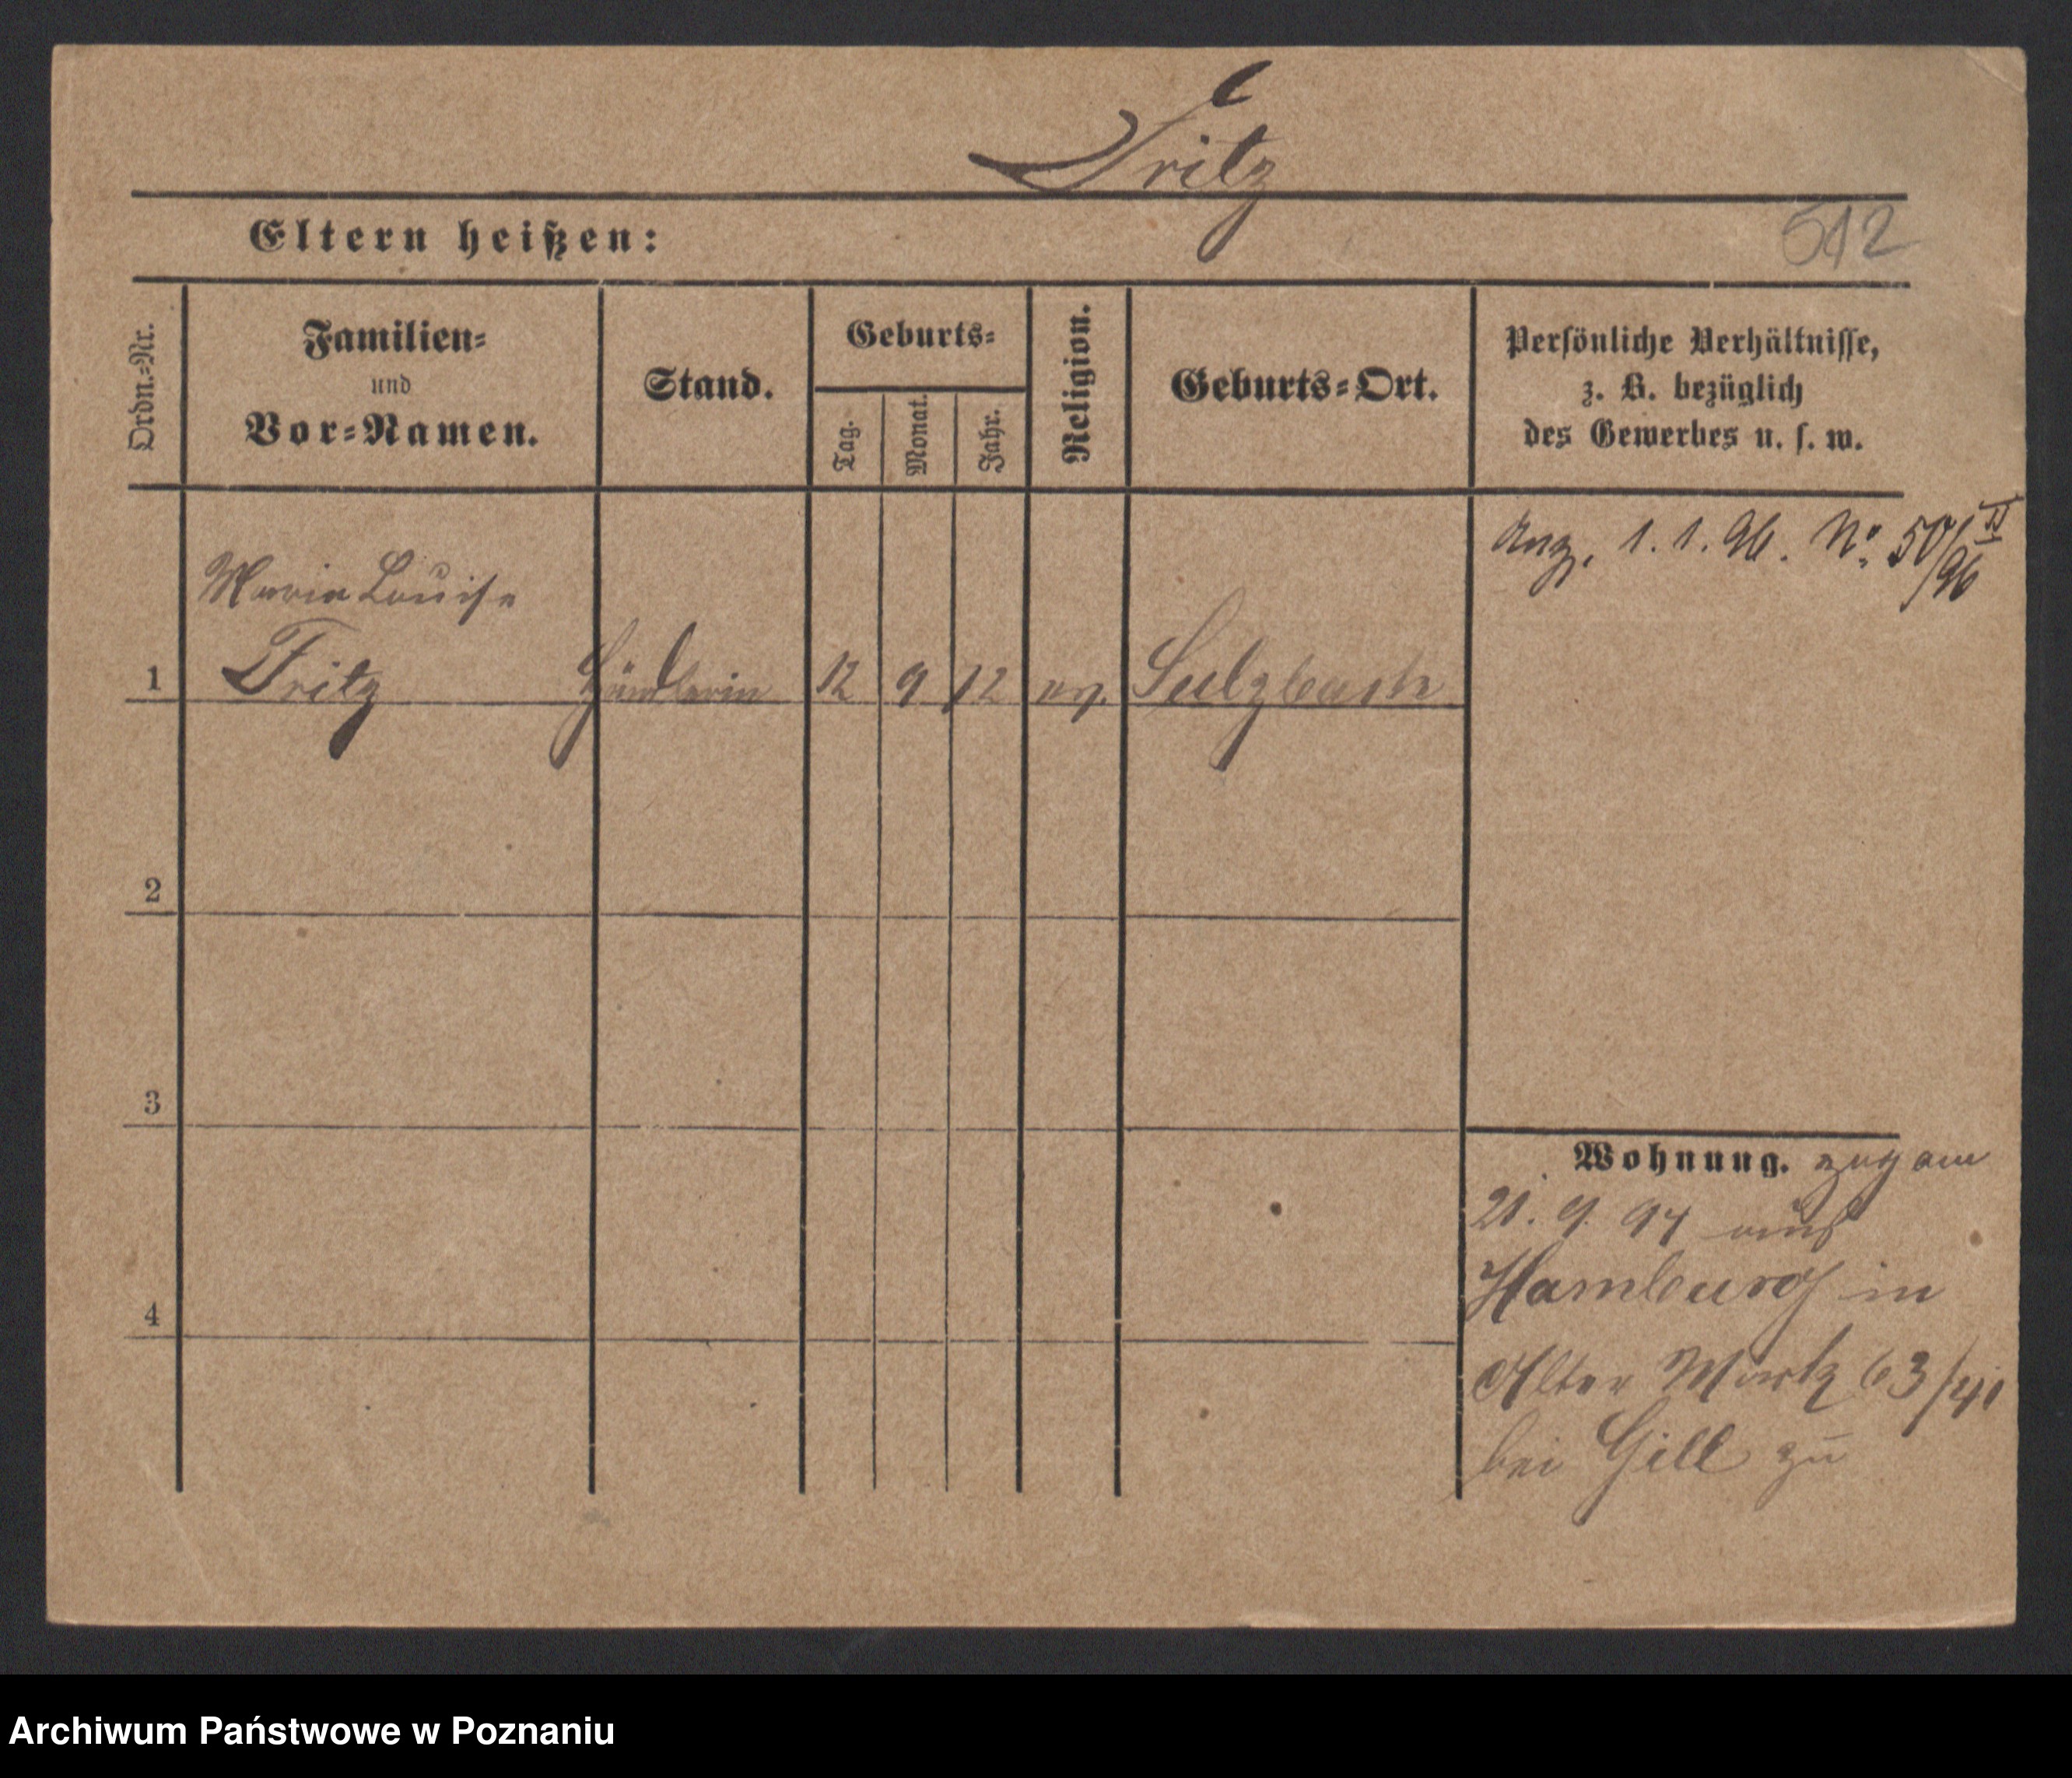 Fritz
Eltern heißen:
512
Ordn.-Nr.
Familien-
und
Vor-Namen.
Stand.
Geburts-
Tag.
Monat.
Jahr.
Religion.
Geburts-Ort.
Persönliche Verhältnisse,
z. B. bezüglich
des Gewerbes u. s. w.
1. 1. 96. No. 50/96 II
Maria Louise
1 Fritz Händlerin 12 9 12 ev. Sulzbach
2
3
4
Wohnung. zug am
21. 9. 94 aus
Hamburg in
Alter Markt 63/41
bei Gill zu
Archiwum Państwowe w Poznaniu